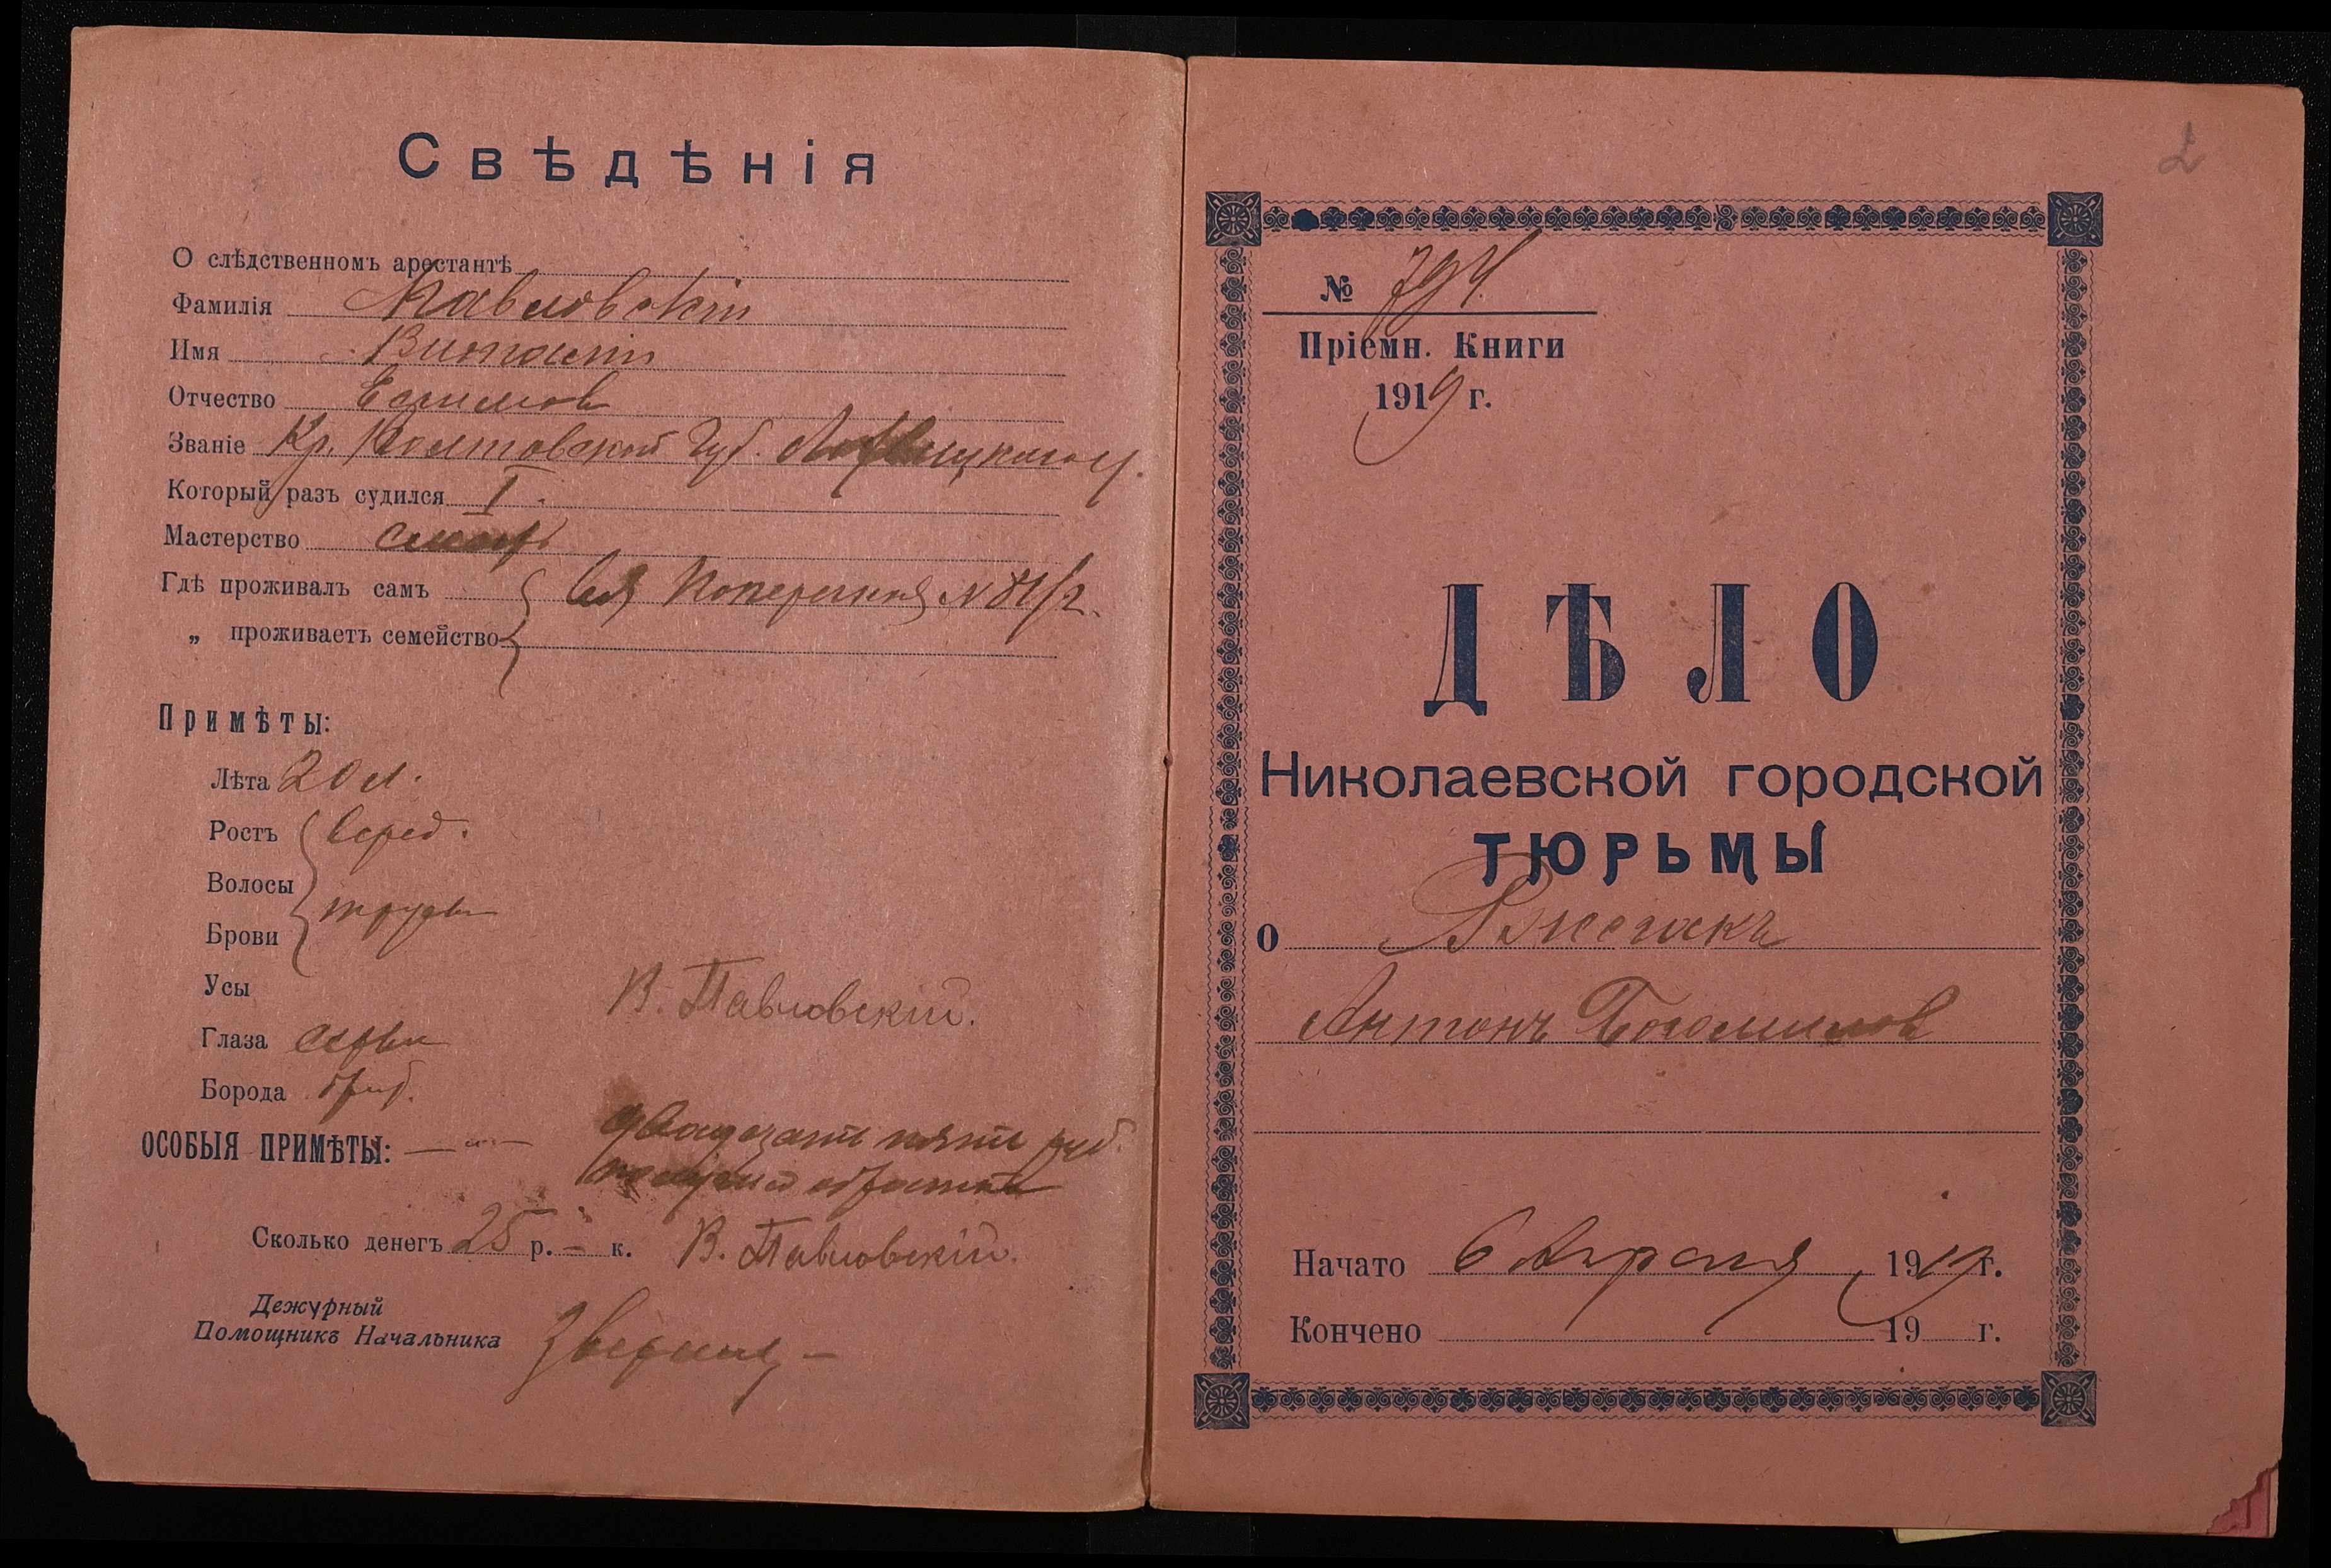 Свѣдѣнія
О слѣдственномъ арестантѣ
Фамилія Павловскій
Имя
Отчество Ефимов
Званіе Кр. Полтовской Губ.
Который разъ судился I.
Мастерство слесарь
Гдѣ проживалъ самъ Поперечная № 81/2.
„ проживаетъ семейство
Примѣты:
Лѣта 20 л.
Ростъ Серед.
Волосы
Брови
Усы
В. Павловскій.
Глаза серые
Борода брит.
ОСОБЫЯ ПРИМѢТЫ:
двадцать пять руб.
получил обратно
Сколько денегъ 25 р. - к. В. Павловскій.
Дежурный
Помощникъ Начальника
2
№ 794
Пріемн. Книги
1919 г.
ДѢЛО
Николаевской городской
ТЮРЬМЫ
О
Антонъ Богомилов
Начато 6 Апреля 1919г.
Кончено 19 г.